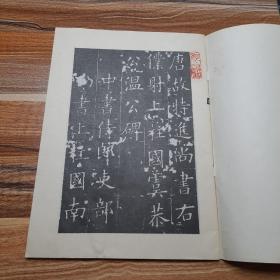 唐故特進尚書右
僕射上柱國虞恭
公溫公碑
中書侍郎吏部
書上柱國南